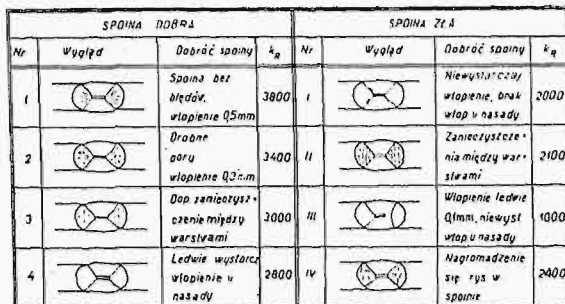 SPOINA DOBRA
SPOINA ZŁA
Nr Wygląd Dobróć spoiny kR Nr Wygląd Dobróć spoiny kR
1 Spoina bez błędów, wtopienie 0,5mm 3800
I Niewystarczaj wtopienie, brak wtop u nasady 2000
2 Drobne pory wtopienie mm 3400
II Zanieczyszcze- nia między war- stwami 2100
3 Dop zanieczysz- czenie między warstwami 3000
III Wtopienie ledwie 0,1mm, niewyst wtop u nasady 1000
4 Ledwie wystarcz wtopienie u nasady 2800
IV Nagromadzenie się rys w spoinie 2400